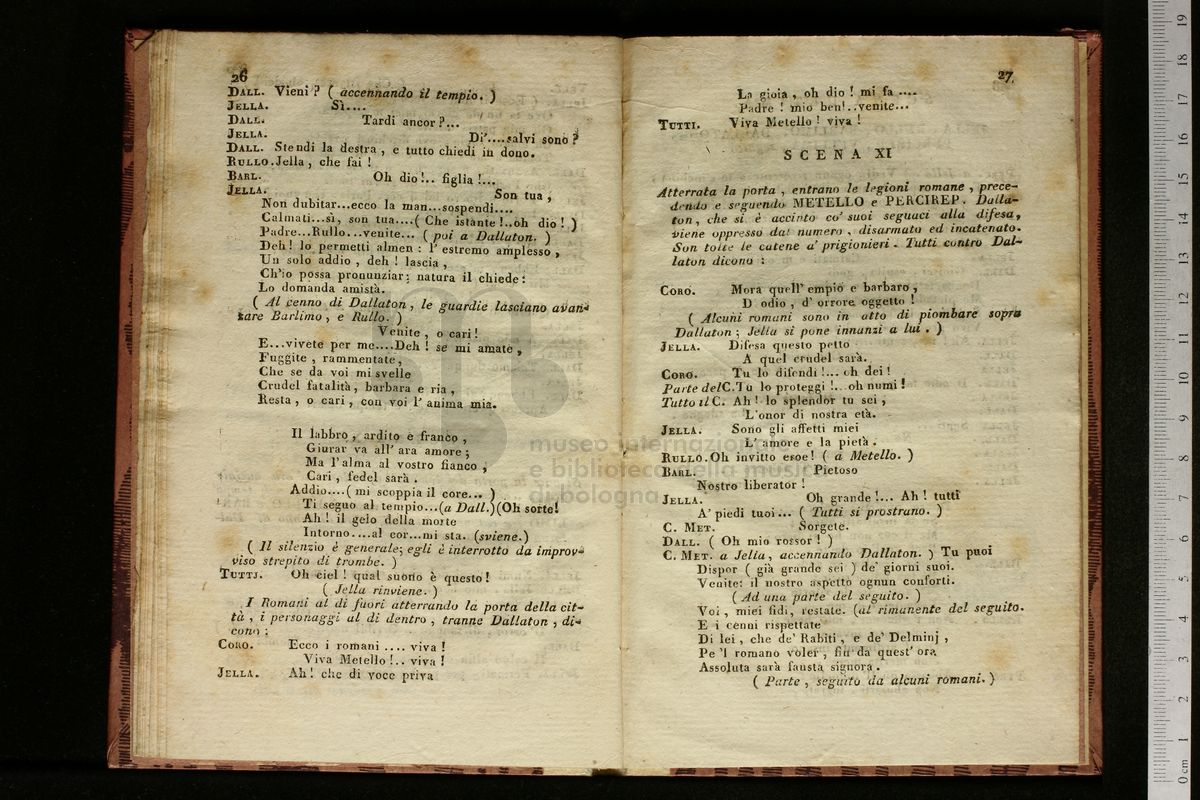 26
DALL. Vieni? ( accennando il tempio. )
JELLA. Sì....
DALL. Tardi ancor?...
JELLA. Di'....salvi sono?
DALL. Stendi la destra, e tutto chiedi in dono.
RULLO. Jella, che fai!
BARL. Oh dio!.. figlia!...
JELLA. Son tua,
Non dubitar...ecco la man...sospendi....
Calmati...sì, son tua....( Che istante!..oh dio! )
Padre...Rullo...venite... ( poi a Dallaton. )
Deh! lo permetti almen: l' estremo amplesso,
Un solo addio, deh! lascia,
Ch'io possa pronunziar: natura il chiede:
Lo domanda amistà.
( Al cenno di Dallaton, le guardie lasciano avan-
zare Barlimo, e Rullo. )
Venite, o cari!
E...vivete per me....Deh! se mi amate,
Fuggite, rammentate,
Che se da voi mi svelle
Crudel fatalità, barbara e ria,
Resta, o cari, con voi l' anima mia.
Il labbro, ardito e franco,
Giurar va all' ara amore;
Ma l'alma al vostro fianco,
Cari, fedel sarà.
Addio....( mi scoppia il core... )
Ti seguo al tempio...(a Dall.)(Oh sorte!
Ah! il gelo della morte
Intorno....al cor...mi sta. (sviene.)
( Il silenzio è generale; egli è interrotto da improv-
viso strepito di trombe. )
TUTTI. Oh ciel! qual suono è questo!
( Jella rinviene. )
I Romani al di fuori atterrando la porta della cit-
tà, i personaggi al di dentro, tranne Dallaton, di-
cono:
CORO. Ecco i romani .... viva!
Viva Metello!.. viva!
JELLA. Ah! che di voce priva
27
La gioia, oh dio! mi fa ....
Padre! mio ben!..venite...
TUTTI. Viva Metello! viva!
SCENA XI
Atterrata la porta, entrano le legioni romane, prece-
dendo e seguendo METELLO e PERCIREP. Dalla-
ton, che si è accinto co' suoi seguaci alla difesa,
viene oppresso dal numero, disarmato ed incatenato.
Son tolte le catene a' prigionieri. Tutti contro Dal-
laton dicono:
CORO. Mora quell' empio e barbaro,
D' odio, d' orrore oggetto!
( Alcuni romani sono in atto di piombare sopra
Dallaton; Jella si pone innanzi a lui. )
JELLA. Difesa questo petto
A quel crudel sarà.
CORO. Tu lo difendi!... oh dei!
Parte del C. Tu lo proteggi!...oh numi!
Tutto il C. Ah! lo splendor tu sei,
L'onor di nostra età.
JELLA. Sono gli affetti miei
L' amore e la pietà.
RULLO. Oh invitto eroe! ( a Metello. )
BARL. Pietoso
Nostro liberator!
JELLA. Oh grande!... Ah! tutti
A' piedi tuoi... ( Tutti si prostrano. )
C. MET. Sorgete.
DALL. ( Oh mio rossor! )
C. MET. a Jella, accennando Dallaton. ) Tu puoi
Dispor ( già grande sei ) de' giorni suoi.
Venite: il nostro aspetto ognun conforti.
( Ad una parte del seguito. )
Voi, miei fidi, restate. (al rimanente del seguito.
E i cenni rispettate
Di lei, che de' Rabiti, e de' Delminj,
Pe 'l romano voler, fin da quest' ora
Assoluta sarà fausta signora.
( Parte, seguito da alcuni romani. )
museo internazionale
e biblioteca della musica
di bologna
0 cm 1 2 3 4 5 6 7 8 9 10 11 12 13 14 15 16 17 18 19